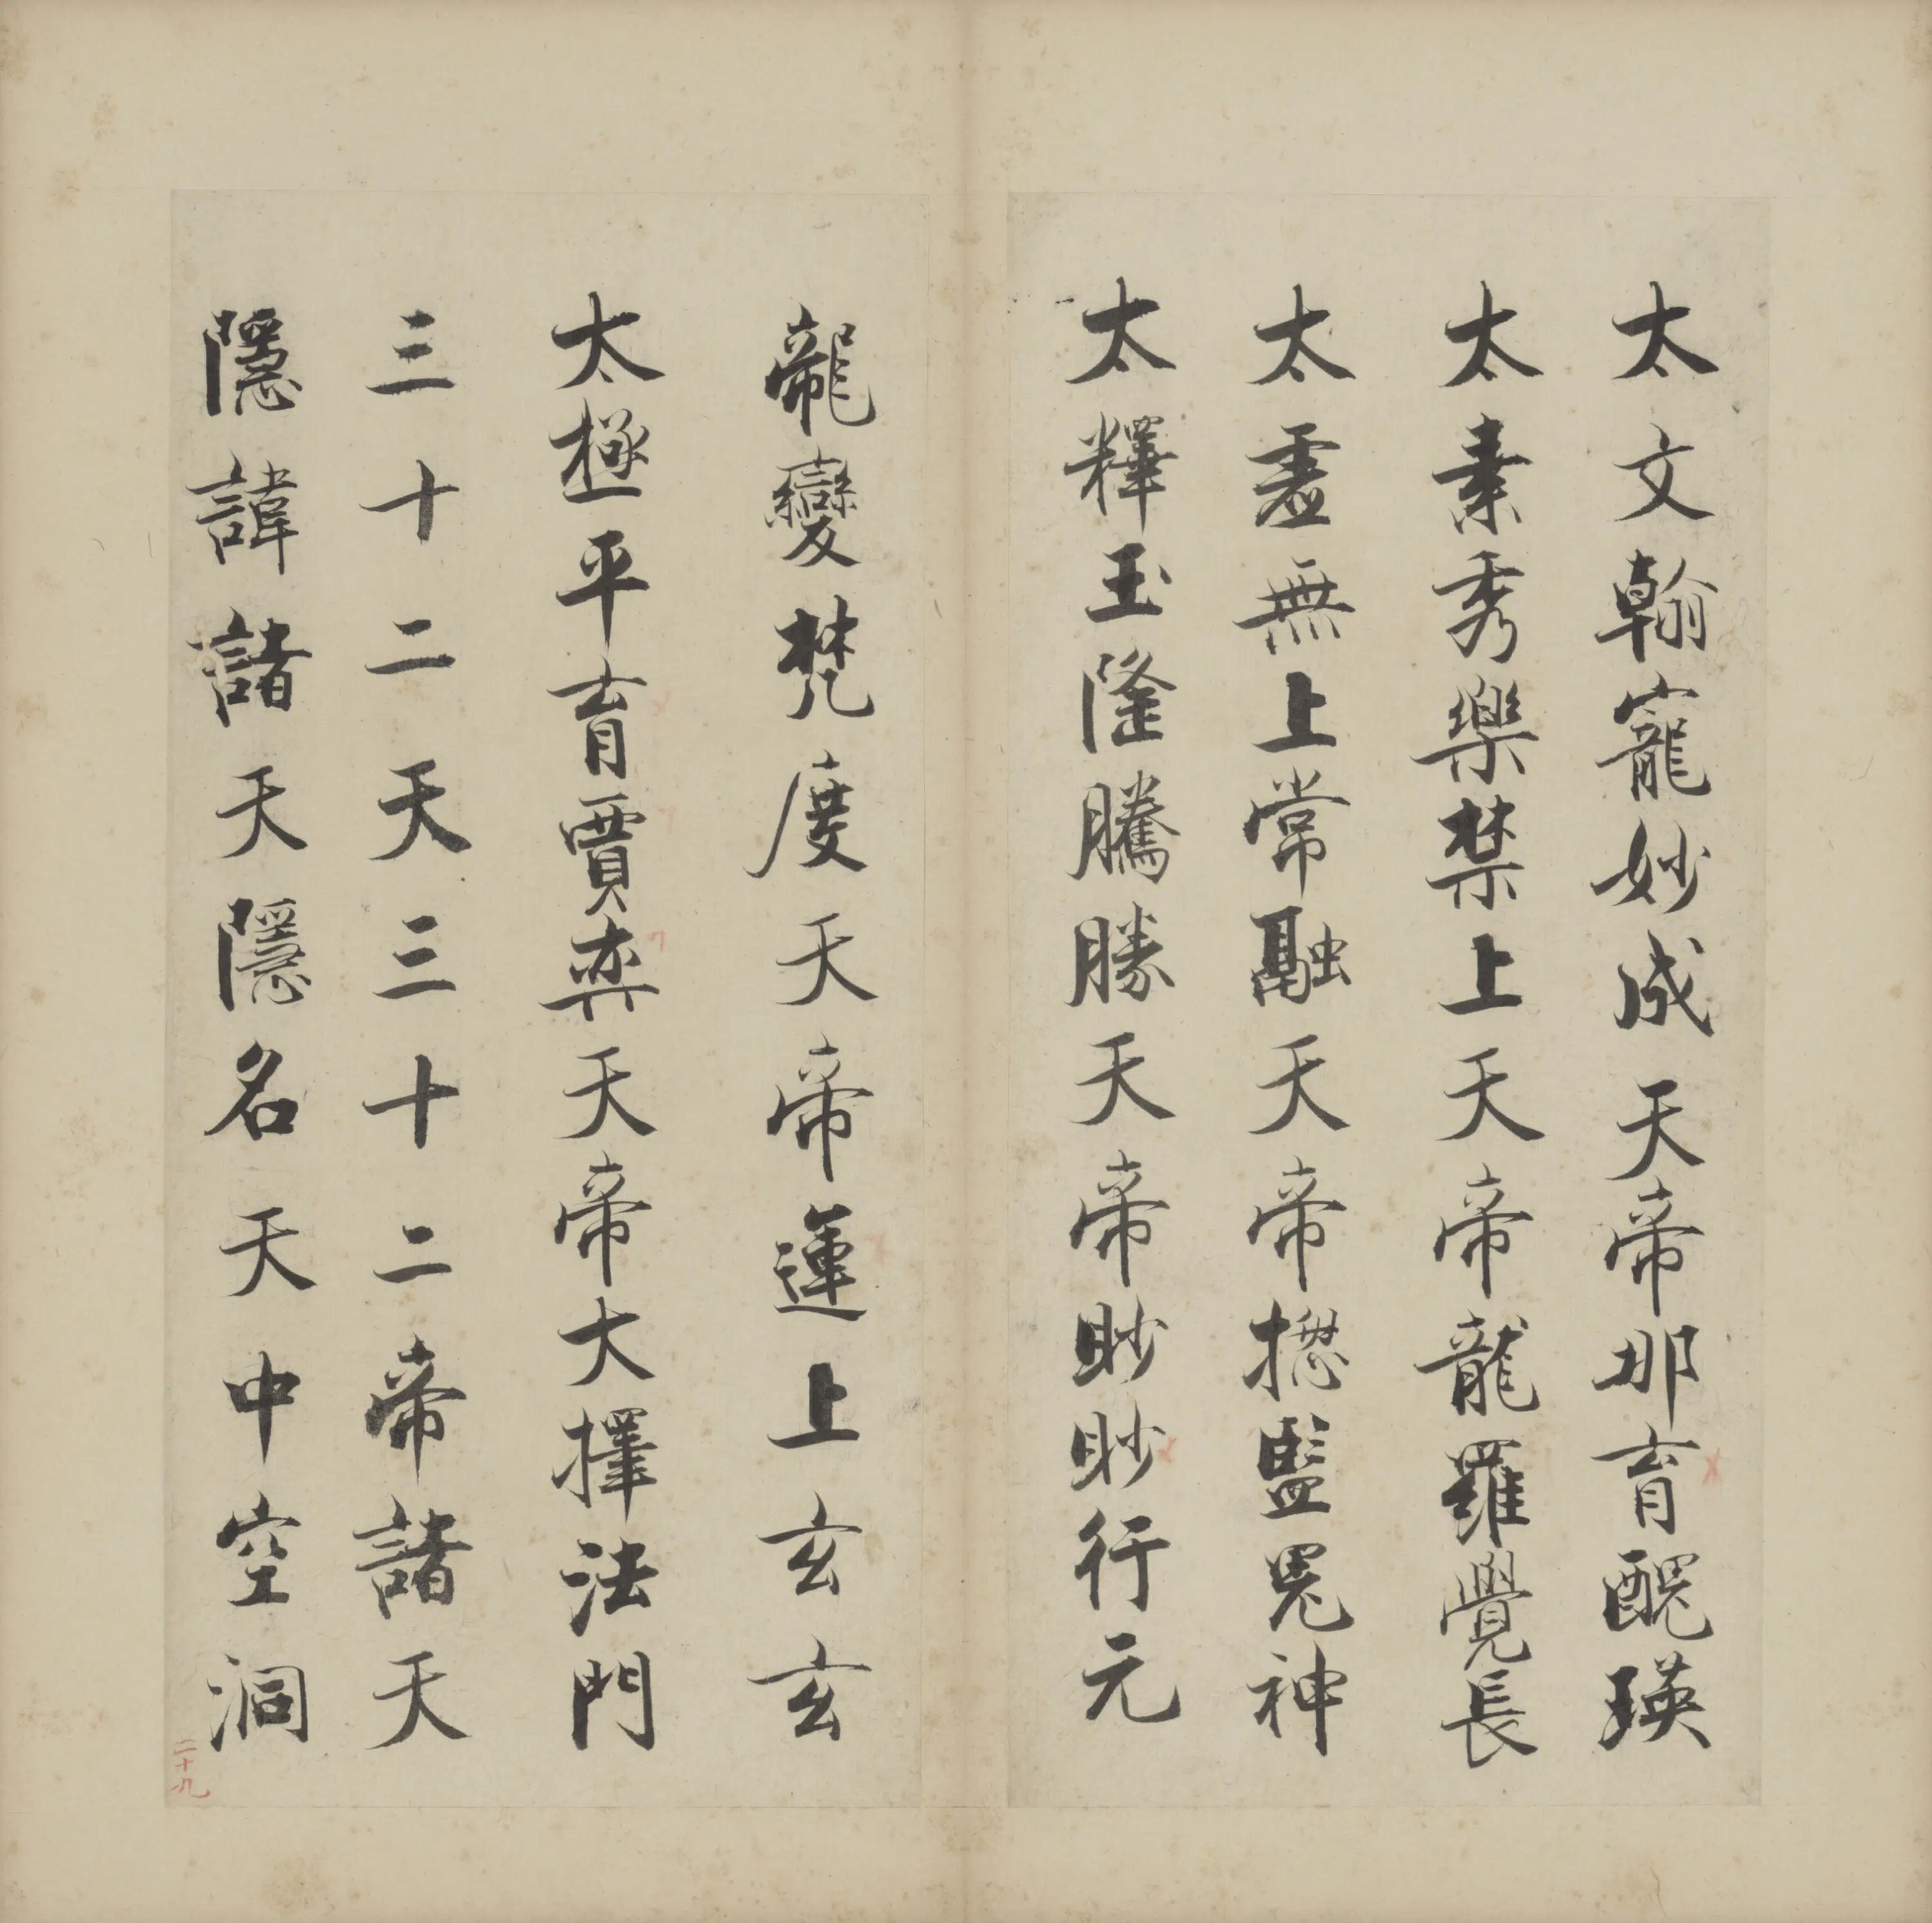 太文翰寵妙成天帝那育醜瑛
太素秀樂禁上天帝龍羅覺長
太虛無上常融天帝揔監鬼神
太釋玉隆騰勝天帝眇眇行元
龍變梵度天帝運上玄玄
太極平育賈奕天帝大擇法門
三十二天三十二帝諸天
隱諱諸天隱名天中空洞
二十九